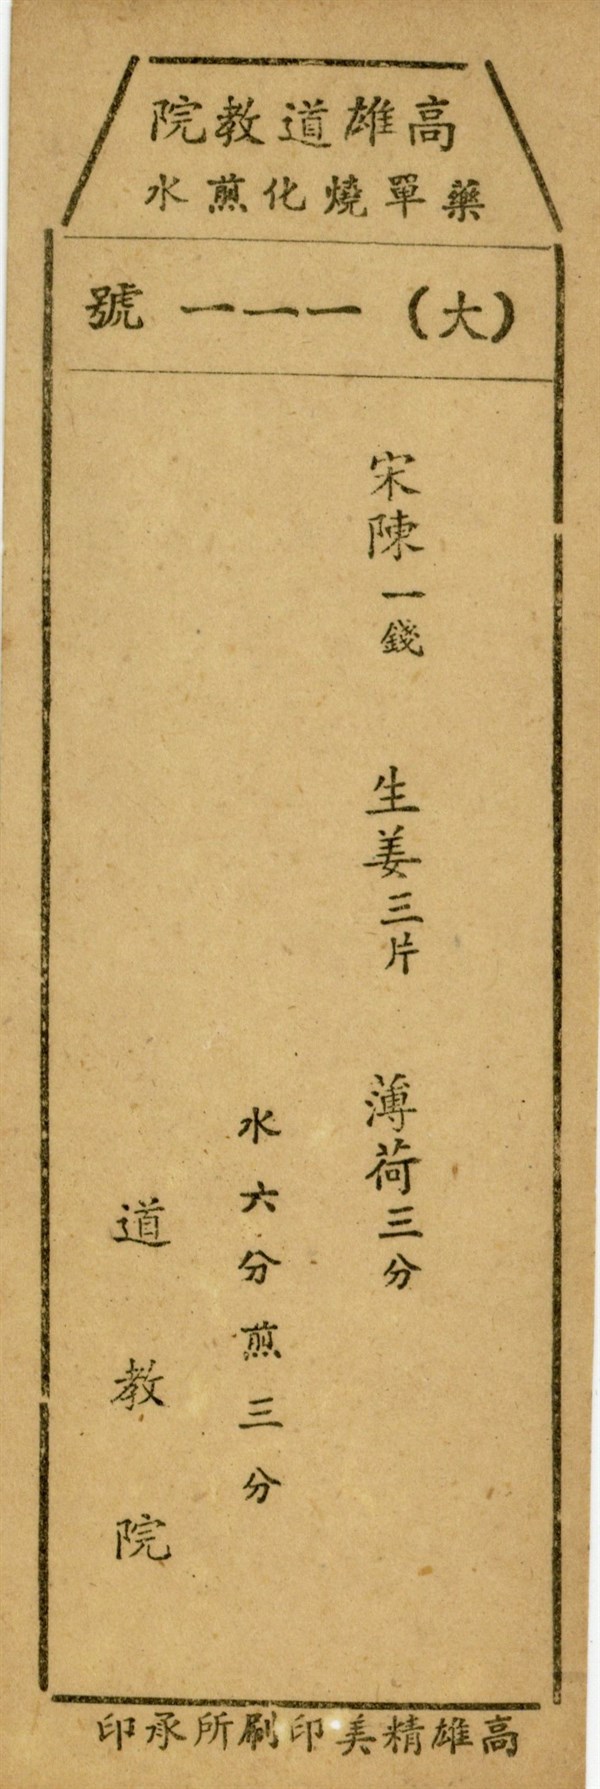 高雄道教院
藥單燒化煎水
(大)一一一號
宋陳一錢 生姜三片 薄荷三分
水六分煎三分
道教院
高雄精美印刷所承印